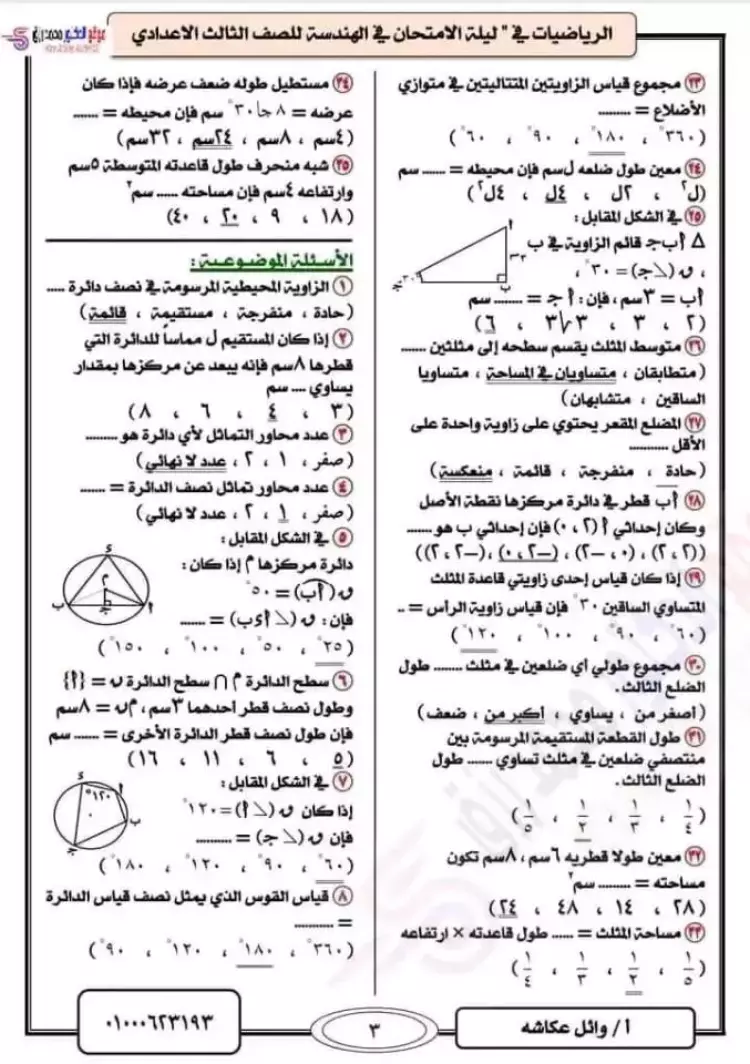 الرياضيات في " ليلة الامتحان في الهندسة للصف الثالث الاعدادي
موقع الدكتور محمد رزق
٢٣ مجموع قياس الزاويتين المتتاليتين في متوازي
الأضلاع = .........
(٣٦٠° ، ١٨٠° ، ٩٠° ، ٦٠°)
٢٤ معين طول ضلعه ل سم فإن محيطه = ...... سم
(ل٢ ، ٢ل ، ٤ل ، ٤ل٢)
٢٥ في الشكل المقابل :
Δ أ ب جـ قائم الزاوية في ب
، ق (∠ جـ) = ٣٠° ،
أب = ٣ سم ، فإن : أ جـ = ........ سم
(٢ ، ٣ ، ٣√٣ ، ٦)
أ
٣سم
ب
٣٠°
جـ
٢٦ متوسط المثلث يقسم سطحه إلى مثلثين ......
(متطابقان ، متساويان في المساحة ، متساويا
الساقين ، متشابهان)
٢٧ المضلع المقعر يحتوي على زاوية واحدة على
الأقل ..........
(حادة ، منفرجة ، قائمة ، منعكسة)
٢٨ أب قطر في دائرة مركزها نقطة الأصل
وكان إحداثي أ (٢ ، ٠) فإن إحداثي ب هو ......
((٢ ، ٢) ، (٠ ، -٢) ، (-٢ ، ٠) ، (-٢ ، ٢))
٢٩ إذا كان قياس إحدى زاويتي قاعدة المثلث
المتساوي الساقين ٣٠° فإن قياس زاوية الرأس = ..
(٦٠° ، ٩٠° ، ١٠٠° ، ١٢٠°)
٣٠ مجموع طولي أي ضلعين في مثلث ........ طول
الضلع الثالث .
(أصغر من ، يساوي ، أكبر من ، ضعف)
٣١ طول القطعة المستقيمة المرسومة بين
منتصفي ضلعين في مثلث تساوي ....... طول
الضلع الثالث .
(١/٤ ، ١/٣ ، ١/٢ ، ١/٥)
٣٢ معين طولا قطريه ٦سم ، ٨سم تكون
مساحته = ......... سم٢
(٢٨ ، ١٤ ، ٤٨ ، ٢٤)
٣٣ مساحة المثلث = ...... طول قاعدته × ارتفاعه
(١/٥ ، ١/٢ ، ١/٣ ، ١/٤)
٣٤ مستطيل طوله ضعف عرضه فإذا كان
عرضه = ٨ جا ٣٠° سم فإن محيطه = ......
(٤سم ، ٨سم ، ٢٤سم ، ٣٢سم)
٣٥ شبه منحرف طول قاعدته المتوسطة ٥سم
وارتفاعه ٤سم فإن مساحته ...... سم٢
(١٨ ، ٩ ، ٢٠ ، ٤٠)
الأسئلة الموضوعية :
١ الزاوية المحيطية المرسومة في نصف دائرة .....
(حادة ، منفرجة ، مستقيمة ، قائمة)
٢ إذا كان المستقيم ل مماساً للدائرة التي
قطرها ٨سم فإنه يبعد عن مركزها بمقدار
يساوي .... سم
(٣ ، ٤ ، ٦ ، ٨)
٣ عدد محاور التماثل لأي دائرة هو .........
(صفر ، ١ ، ٢ ، عدد لا نهائي)
٤ عدد محاور تماثل نصف الدائرة = ......
(صفر ، ١ ، ٢ ، عدد لا نهائي)
٥ في الشكل المقابل :
دائرة مركزها م إذا كان :
ق (أب) = ٥٠°
فإن : ق (∠ أ ء ب) = .......
(٢٥° ، ٥٠° ، ١٠٠° ، ١٥٠°)
ء
م
ب
جـ
أ
٦ سطح الدائرة م ∩ سطح الدائرة ن = {أ}
وطول نصف قطر أحدهما ٣سم ، م ن = ٨سم
فإن طول نصف قطر الدائرة الأخرى = ...... سم
(٥ ، ٦ ، ١١ ، ١٦)
٧ في الشكل المقابل :
إذا كان ق (∠ أ) = ١٢٠°
فإن ق (∠ جـ) = .........
(٦٠° ، ٩٠° ، ١٢٠° ، ١٨٠°)
ء
أ
١٢٠°
ب
جـ
٨ قياس القوس الذي يمثل نصف قياس الدائرة
= ..........
(٣٦٠° ، ١٨٠° ، ١٢٠° ، ٩٠°)
أ / وائل عكاشه
٣
٠١٠٠٠٦٢٣١٩٣